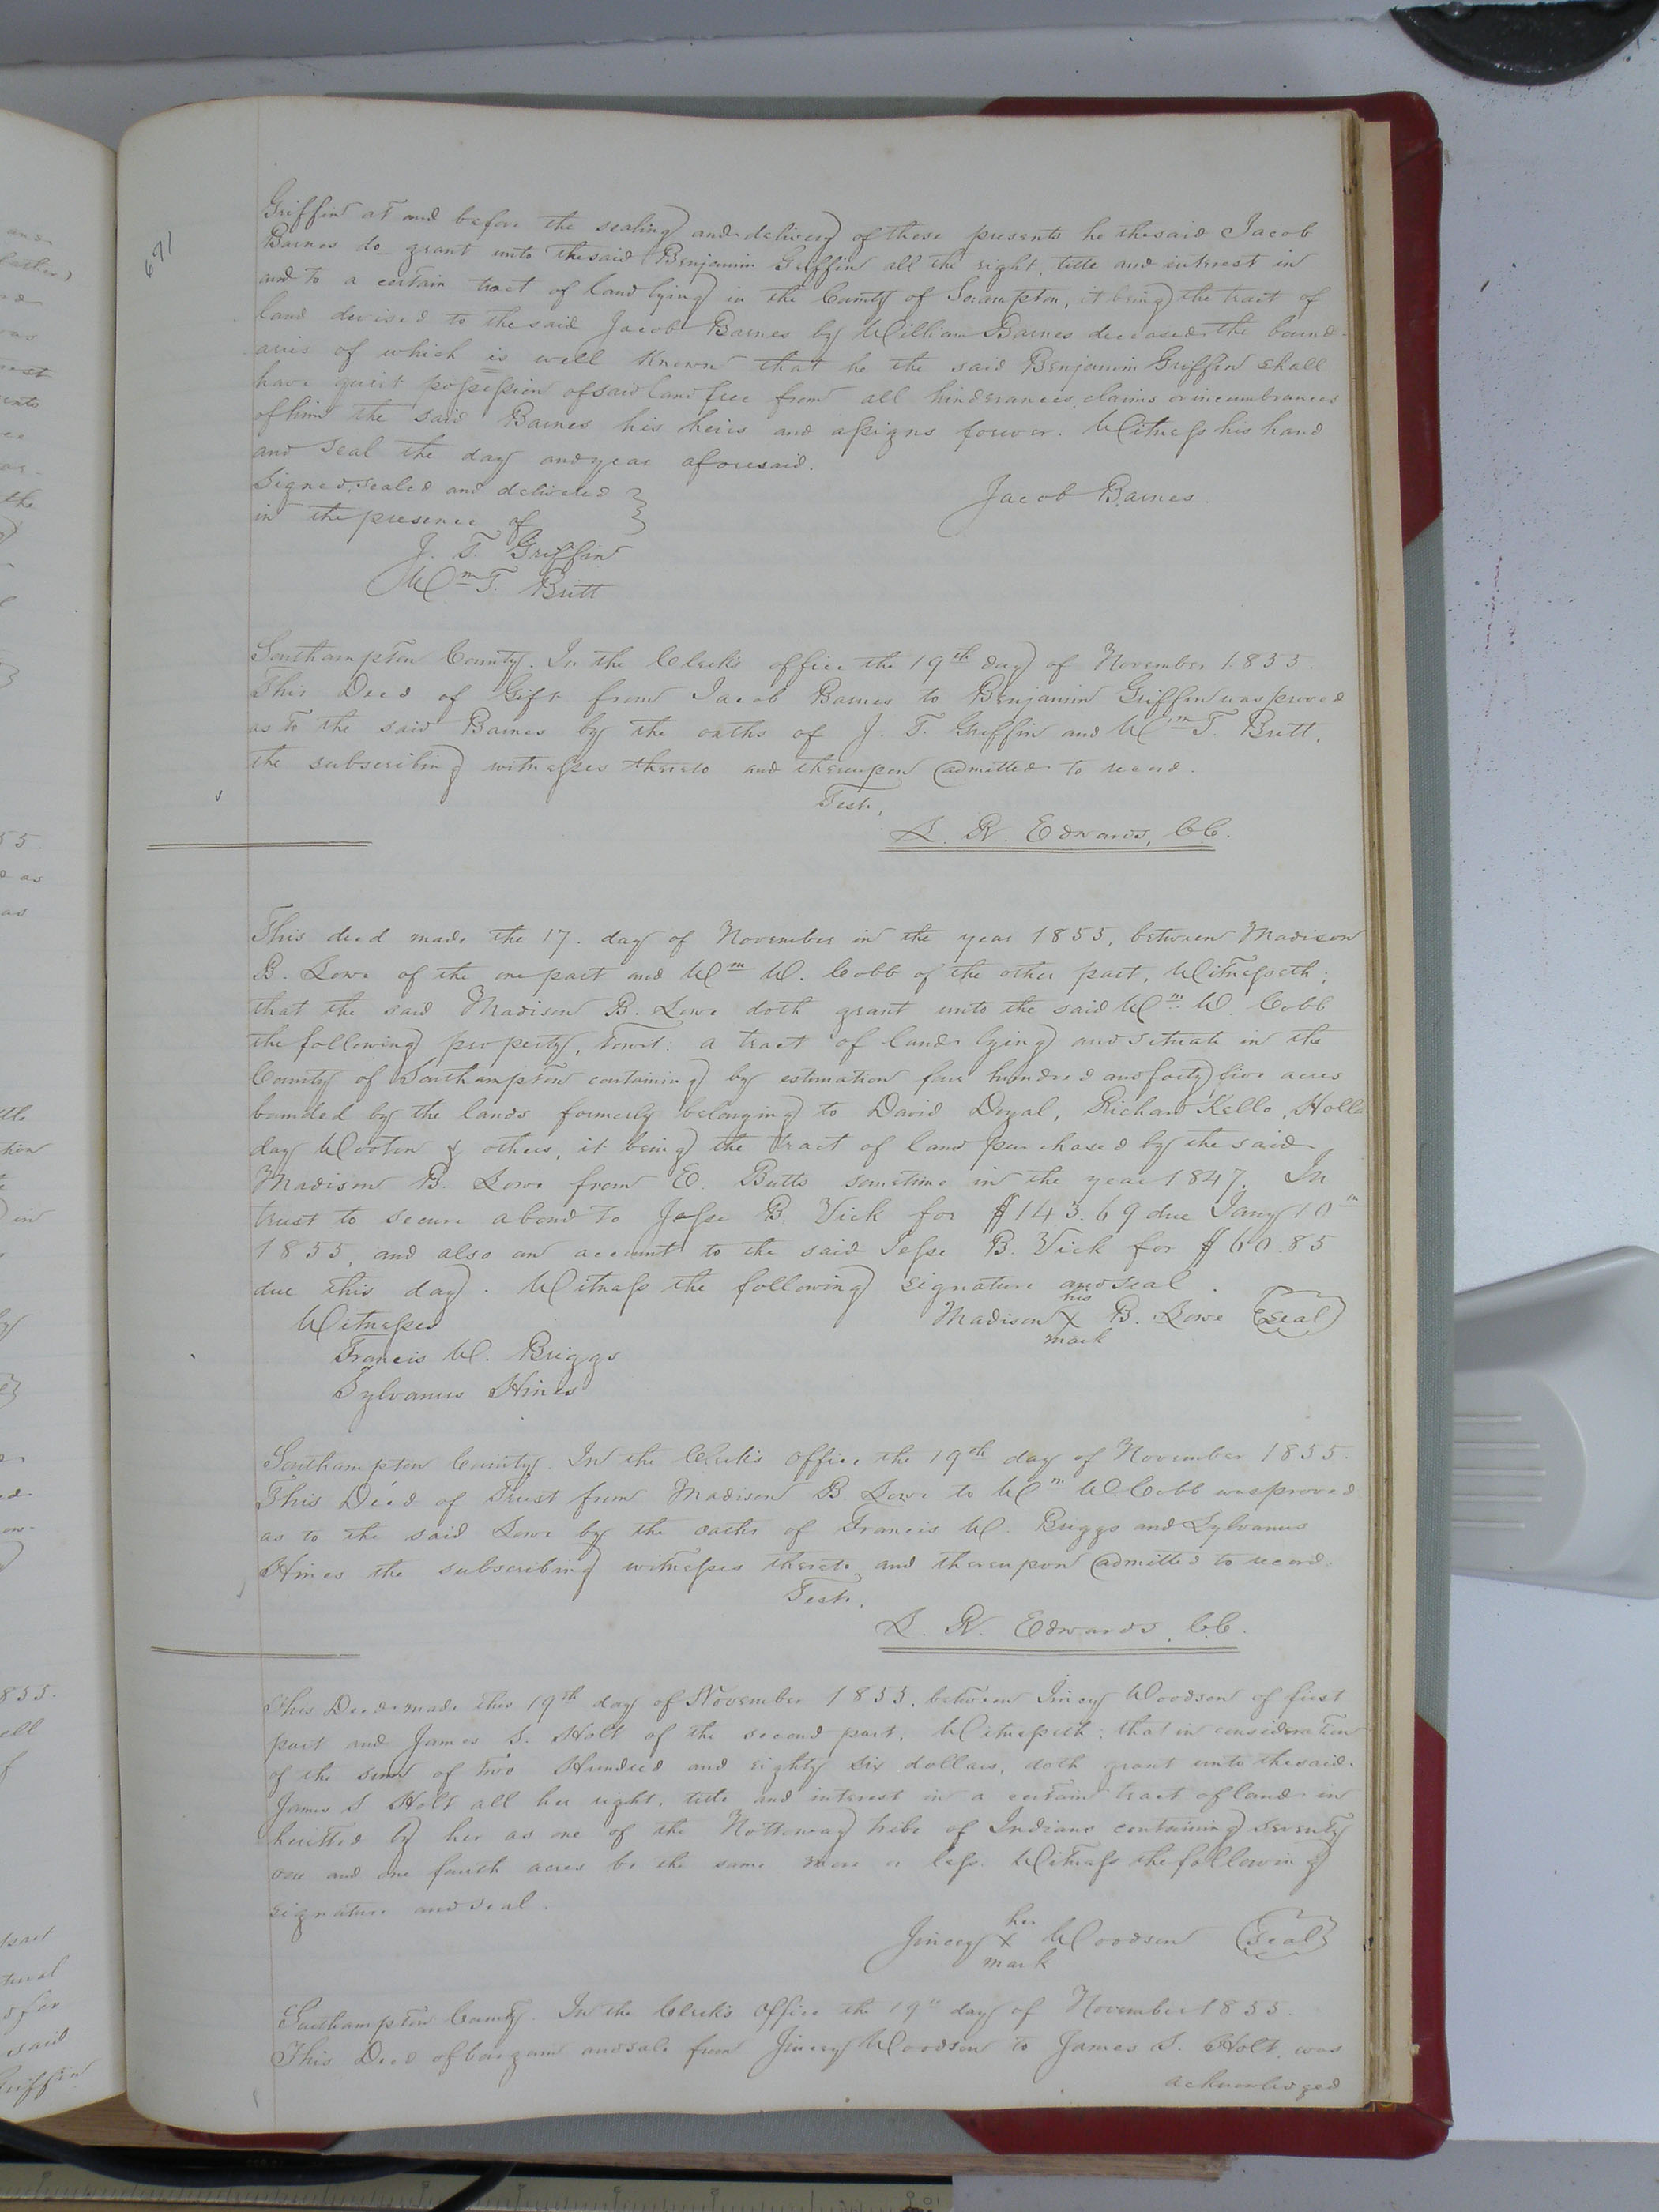 691
Griffin at and before the sealing and delivery of these presents he the said Jacob
Barnes do grant unto the said Benjamin Griffin all the right, title and interest in
and to a certain tract of land lying in the County of Southampton, it being the tract of
land devised to the said Jacob Barnes by William Barnes deceased the bound-
aries of which is well known that he the said Benjamin Griffin shall
have quiet possession of said land free from all hinderances, claims or incumbrances
of him the said Barnes his heirs and assigns forever. Witness his hand
and seal the day and year aforesaid.
Signed, sealed and delivered
in the presence of
Jacob Barnes
J. T. Griffin
Wm T. Britt
Southampton County. In the Clerk's office the 19th day of November 1855.
This Deed of Gift from Jacob Barnes to Benjamin Griffin was proved
as to the said Barnes by the oaths of J. T. Griffin and Wm T. Britt,
the subscribing witnesses thereto and thereupon admitted to record.
Test,
L. R. Edwards, C.C.
This deed made the 17. day of November in the year 1855, between Madison
B. Lowe of the one part and Wm W. Cobb of the other part, Witnesseth;
that the said Madison B. Lowe doth grant unto the said Wm W. Cobb
the following property, Towit: a tract of land lying and situate in the
County of Southampton containing by estimation four hundred and forty five acres
bounded by the lands formerly belonging to David Doyal, Richard Kello, Holla
day Wooten & others, it being the tract of land purchased by the said
Madison B. Lowe from E. Butts sometime in the year 1847. In
trust to secure a bond to Jesse B. Vick for $143.69 due Jany 10th
1855, and also an account to the said Jesse B. Vick for $60.85
due this day. Witness the following signature and seal.
Witnesses
Madison his X mark B. Lowe Seal
Francis W. Briggs
Sylvanus Hines
Southampton County. In the Clerk's Office the 19th day of November 1855.
This Deed of Trust from Madison B. Lowe to Wm W. Cobb was proved
as to the said Lowe by the oaths of Francis W. Briggs and Sylvanus
Hines the subscribing witnesses thereto and thereupon admitted to record.
Test,
L. R. Edwards, C.C.
This Deed made this 19th day of November 1855, between Jincey Woodson of first
part and James S. Holt of the second part, Witnesseth: that in consideration
of the sum of Two Hundred and eighty six dollars, doth grant unto the said
James S Holt all her right, title and interest in a certain tract of land in
heritted by her as one of the Nottoway tribe of Indians containing seventy
one and one fourth acres be the same more or less. Witness the following
signature and seal.
Jincey her X mark Woodson Seal
Southampton County. In the Clerk's Office the 19th day of November 1855.
This Deed of bargain and sale from Jincey Woodson to James S. Holt, was
acknowledged